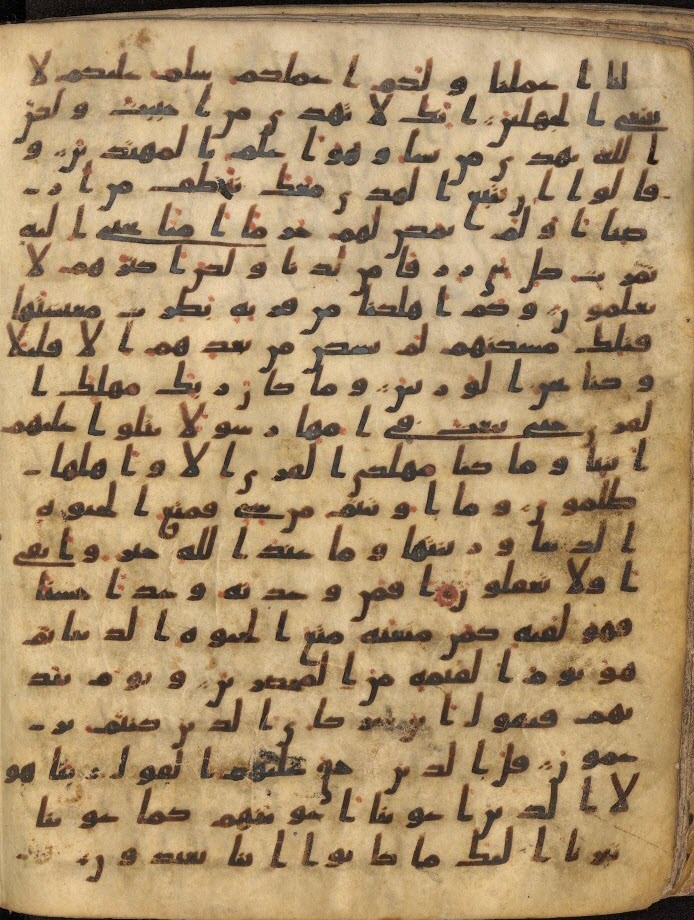 لنا اعملنا ولكم اعملكم سلم عليكم لا
نبتغي الجهلين انك لا تهدي من احببت ولكن
الله يهدي من يشا وهو اعلم بالمهتدين و
قالوا ان نتبع الهدى معك نتخطف من ار
ضنا او لم نمكن لهم حرما امنا يجبى اليه
ثمرت كل شي رزقا من لدنا ولكن اكثرهم لا
يعلمون وكم اهلكنا من قريه بطرت معيشتها
فتلك مسكنهم لم تسكن من بعدهم الا قليلا
وكنا نحن الورثين وما كان ربك مهلك ا
لقرى حتى يبعث في امها رسولا يتلوا عليهم
ايتنا وما كنا مهلكي القرى الا واهلها
ظلمون وما اوتيتم من شي فمتع الحيوه
الدنيا وزينتها وما عند الله خير وابقى
افلا تعقلون افمن وعدنه وعدا حسنا
فهو لقيه كمن متعنه متع الحيوه الدنيا ثم
هو يوم القيمه من المحضرين ويوم يناد
يهم فيقول اين شركاي الذين كنتم تز
عمون قال الذين حق عليهم القول ربنا هو
لا الذين اغوينا اغوينهم كما غوينا
تبرانا اليك ما كانوا ايانا يعبدون